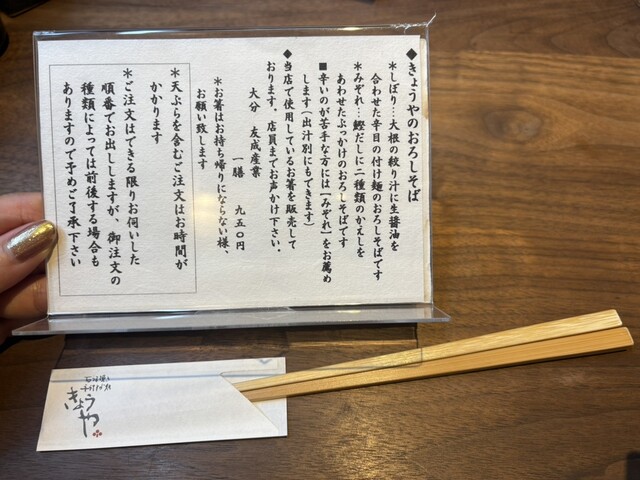 ◆きょうやのおろしそば
＊しぼり…大根の絞り汁に生醤油を
合わせた辛目の付け麺のおろしそばです
＊みぞれ…鰹だしに二種類のかえしを
あわせたぶっかけのおろしそばです
■辛いのが苦手な方には【みぞれ】をお薦め
します(出汁別にもできます)
◆当店で使用しているお箸を販売して
おります。店員までお声かけ下さい。
大分 友成産業
一膳 九五〇円
＊お箸はお持ち帰りにならない様、
お願い致します
＊天ぷらを含むご注文はお時間が
かかります
＊ご注文はできる限りお伺いした
順番でお出ししますが、御注文の
種類によっては前後する場合も
ありますので予めご了承下さい
きょうや